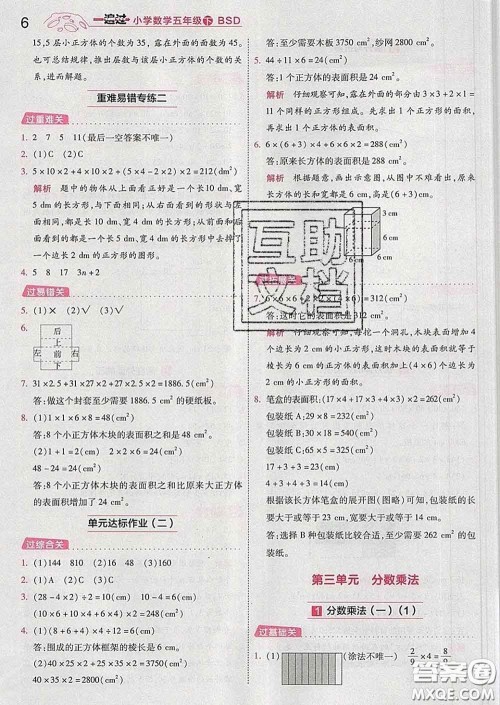 6 一遍过 小学数学五年级 下 BSD
15,5层小正方体的个数为35,露在外面的面数为45。
也可总结规律,推出层数与该层小正方体个数的关系,
进而解题。
重难易错专练二
过重难关
1. 2 7 5 11(最后一空答案不唯一)
2. (1)C (2)D
3. 5×10×2+4×10×2+(5×4-2×2)×2=212(dm²)
解析 题中的物体从上面看正好是一个长10 dm,宽
5 dm的长方形,与下面相同;从右面看到的形状与
左面相同,都是长10 dm、宽4 dm的长方形;从前面
和后面看,都是一个长5 dm、宽4 dm的长方形去掉
一个边长2 dm的正方形的图形。
4. 5 8 17 3n+2
过易错关
5. (1)× (2)× (3)√ (4)√
6. 后
上
左 前 右
下
7. 31×2.5+31×27×2+2.5×27×2=1886.5(cm²)
答:做这个封套至少需要1886.5 cm²的硬纸板。
8. (1)1×1×6×8=48(cm²)
答:8个小正方体木块的表面积之和是48 cm²。
(2)2×2×6=24(cm²)
48-24=24(cm²)
答:8个小正方体木块的表面积之和比原来大正方体
的表面积增加了24 cm²。
单元达标作业(二)
过综合关
1. (1)144 810 (2)48 (3)160
2. (1)D (2)C (3)B (4)C
3. (28-2×4)÷2÷2=5(dm)
(10-5)×4×2=40(dm²)
4. (1)(40+35+15)×4=360(cm)
答:围成的正方体框架的棱长是 cm。
(2)(40×35+40×15+35×15)×2=5050(cm²)
40×35×2=2800(cm²)
答:至少需要木板3750 cm²,纱网2800 cm²。
5. 44÷11×6=24(cm²)
答:1个正方体的表面积是24 cm²。
解析 仔细观察可知,露在外面的部分由3+3×2+1×2=
11个同样的正方形组成。先求出1个正方形的面积,再求
出1个正方体的表面积。
6. 6×(6+3)×4+6×6×2=288(cm²)
答:原来长方体的表面积是288 cm²。
解析 根据题意,画出示意图,从图中不难看出,原来
长方体的长和宽都是6 cm,高是6+3=9(cm)。
3 cm
6 cm
6 cm
互助文档
7. 6×6×6+2×2×4×6=312(cm²)
答:这时它的表面积是312 cm²。
解析 仔细观察可知,每挖一个洞孔,木块表面就增加4
个边长为2 cm的小正方形,这时木块的表面积就等于
棱长为6 cm的正方体的表面积加上(4×6)个边长为
2 cm的小正方形的面积。
8. 笔盒的表面积:(17×4+17×3+4×3)×2=262(cm²)
包装纸A:29×8=232(cm²)
包装纸B:30×18=540(cm²)
包装纸C:65×5=325(cm²)
17+3+3=23(cm)
4+3+4+3=14(cm)
根据该长方体笔盒的展开图(图略)可知,包装纸的长
要大于或等于23 cm,宽要大于或等于14 cm。
答:选择B种包装纸比较合适,至少需要262 cm²的包
装纸。
第三单元 分数乘法
1 分数乘法(一)(1)
过基础关
1. (1) (涂法不唯一) 2/9×4=8/9
答案圈
MXQE.COM